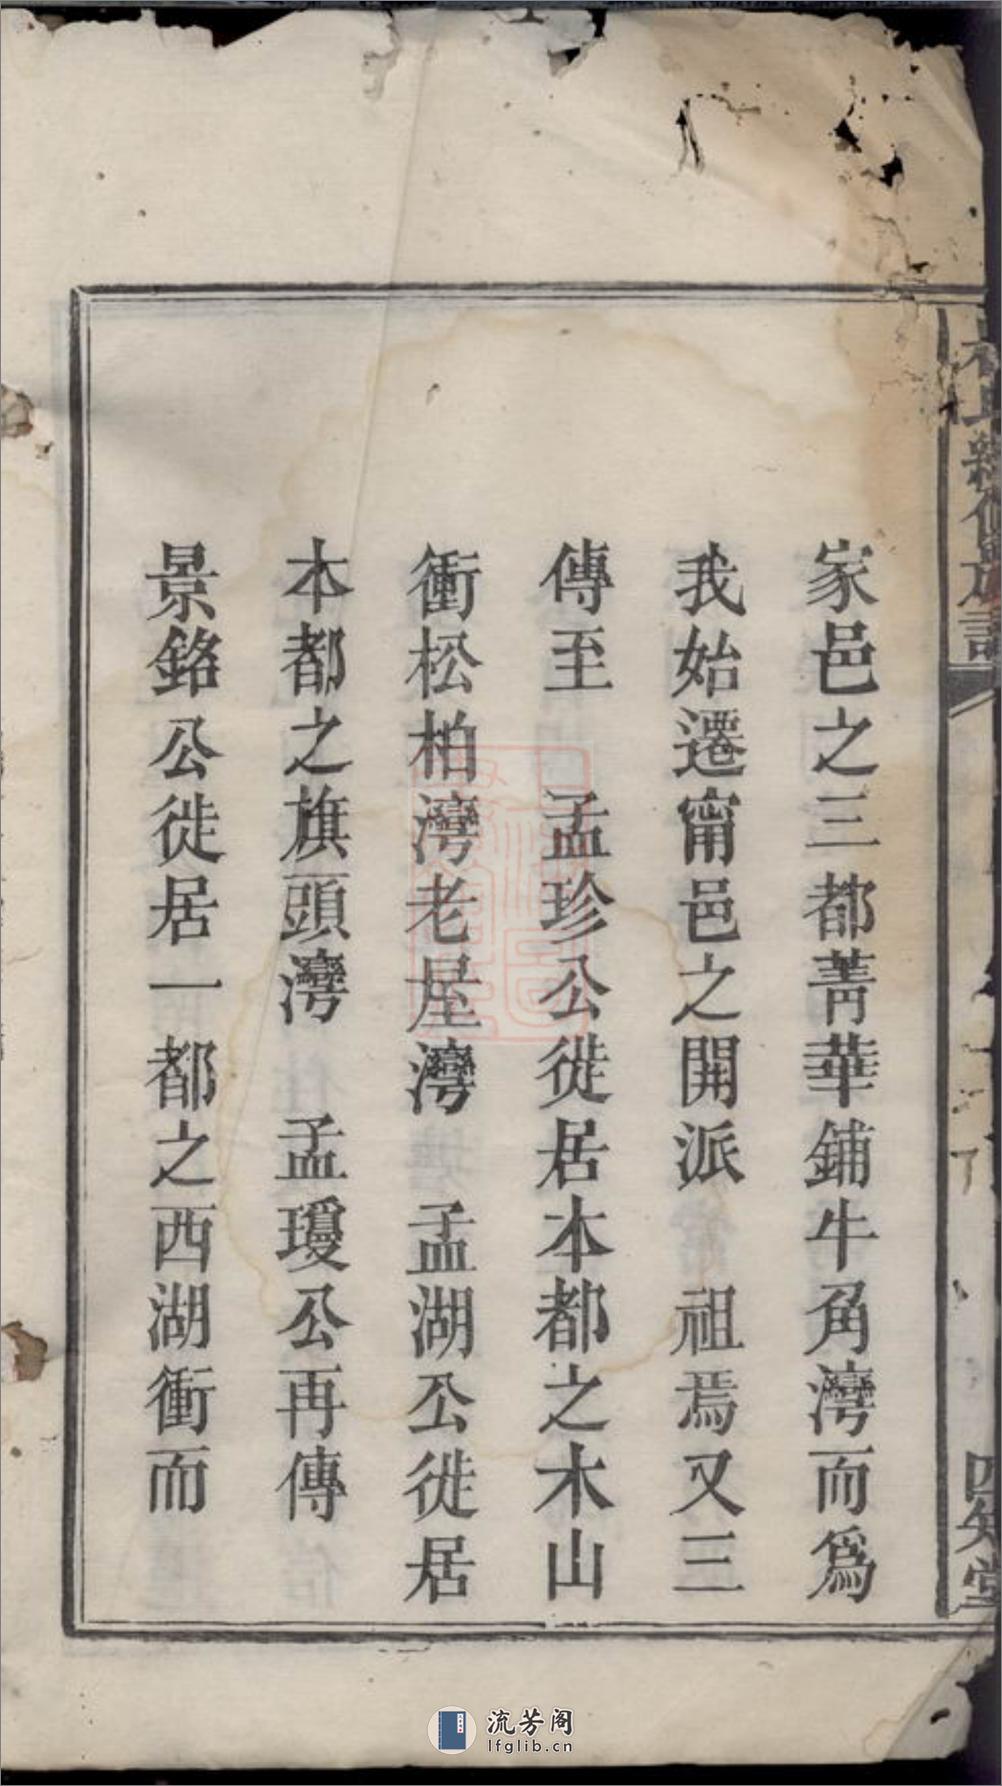 氏續修族譜
四知堂
家邑之三都菁華鋪牛角灣而爲
我始遷甯邑之開派　祖焉又三
傳至　孟珍公徙居本都之木山
衝松柏灣老屋灣　孟湖公徙居
本都之旗頭灣　孟瓊公再傳
景銘公徙居一都之西湖衝而
流芳阁
lfglib.cn